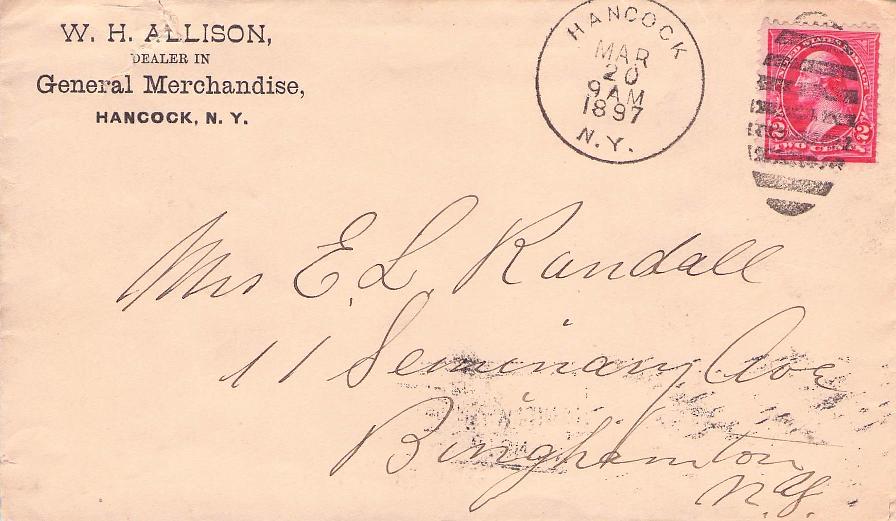 W. H. ALLISON,
DEALER IN
General Merchandise,
HANCOCK, N. Y.
HANCOCK
MAR
20
9 AM
1897
N.Y.
UNITED STATES POSTAGE
2 2
TWO CENTS
Mrs E. L. Randall
11 Seminary Ave
Binghamton
N.Y.